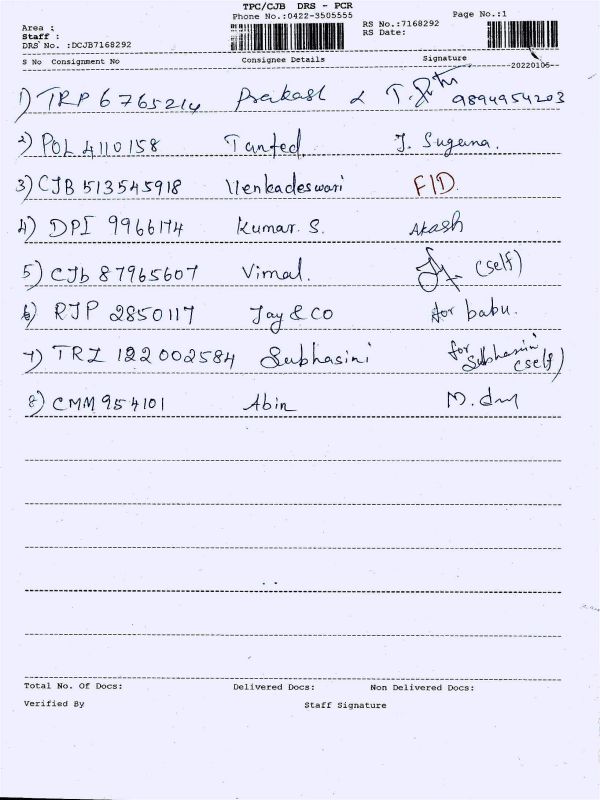 TPC/CJB DRS - PCR
Phone No.:0422-3505555
Page No.:1
Area :
Staff :
DRS No. :DCJB7168292
RS No.:7168292
RS Date:
S No Consignment No Consignee Details Signature 20220105
1) TRP 6765214 Prakash & T. 9894954203
2) POL 4110158 Tanfed J. Suguna.
3) CJB 513545918 Venkadeswari FID.
4) DPI 9966174 Kumar. S. Akash
5) CJb 87965607 Vimal. (self)
6) RJP 2850117 Jay & CO for babu.
7) TRZ 122002584 Subhasini for Subhasini (self)
8) CMM 954101 Abin M.
Total No. Of Docs: Delivered Docs: Non Delivered Docs:
Verified By Staff Signature